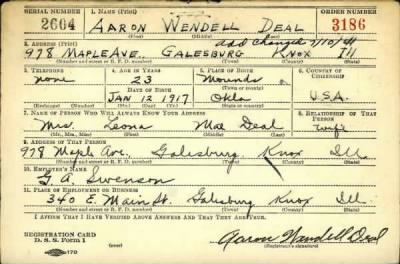 SERIAL NUMBER 1. NAME (Print) ORDER NUMBER
2604 AARON WENDELL DEAL 3186
2. ADDRESS (Print) add changed 7/10/41
978 MAPLE AVE. GALESBURG KNOX Ill
(Number and street or R. F. D. number) (Town) (County) (State)
3. TELEPHONE 4. AGE IN YEARS 5. PLACE OF BIRTH 6. COUNTRY OF CITIZENSHIP
none 23 Mounds
DATE OF BIRTH (Town or county)
JAN 12 1917 Okla U.S.A.
(Exchange) (Number) (Mo.) (Day) (Yr.) (State or country)
7. NAME OF PERSON WHO WILL ALWAYS KNOW YOUR ADDRESS 8. RELATIONSHIP OF THAT PERSON
Mrs. Leona Mae Deal Wife
(Mr., Mrs., Miss) (First) (Middle) (Last)
9. ADDRESS OF THAT PERSON
978 Maple Ave. Galesburg Knox Ill.
(Number and street or R. F. D. number) (Town) (County) (State)
10. EMPLOYER'S NAME
G. A. Swenson
11. PLACE OF EMPLOYMENT OR BUSINESS
340 E. Main St. Galesburg Knox Ill.
(Number and street or R. F. D. number) (Town) (County) (State)
I AFFIRM THAT I HAVE VERIFIED ABOVE ANSWERS AND THAT THEY ARE TRUE.
REGISTRATION CARD
D. S. S. Form 1 Aaron Wendell Deal
(Registrant's signature)